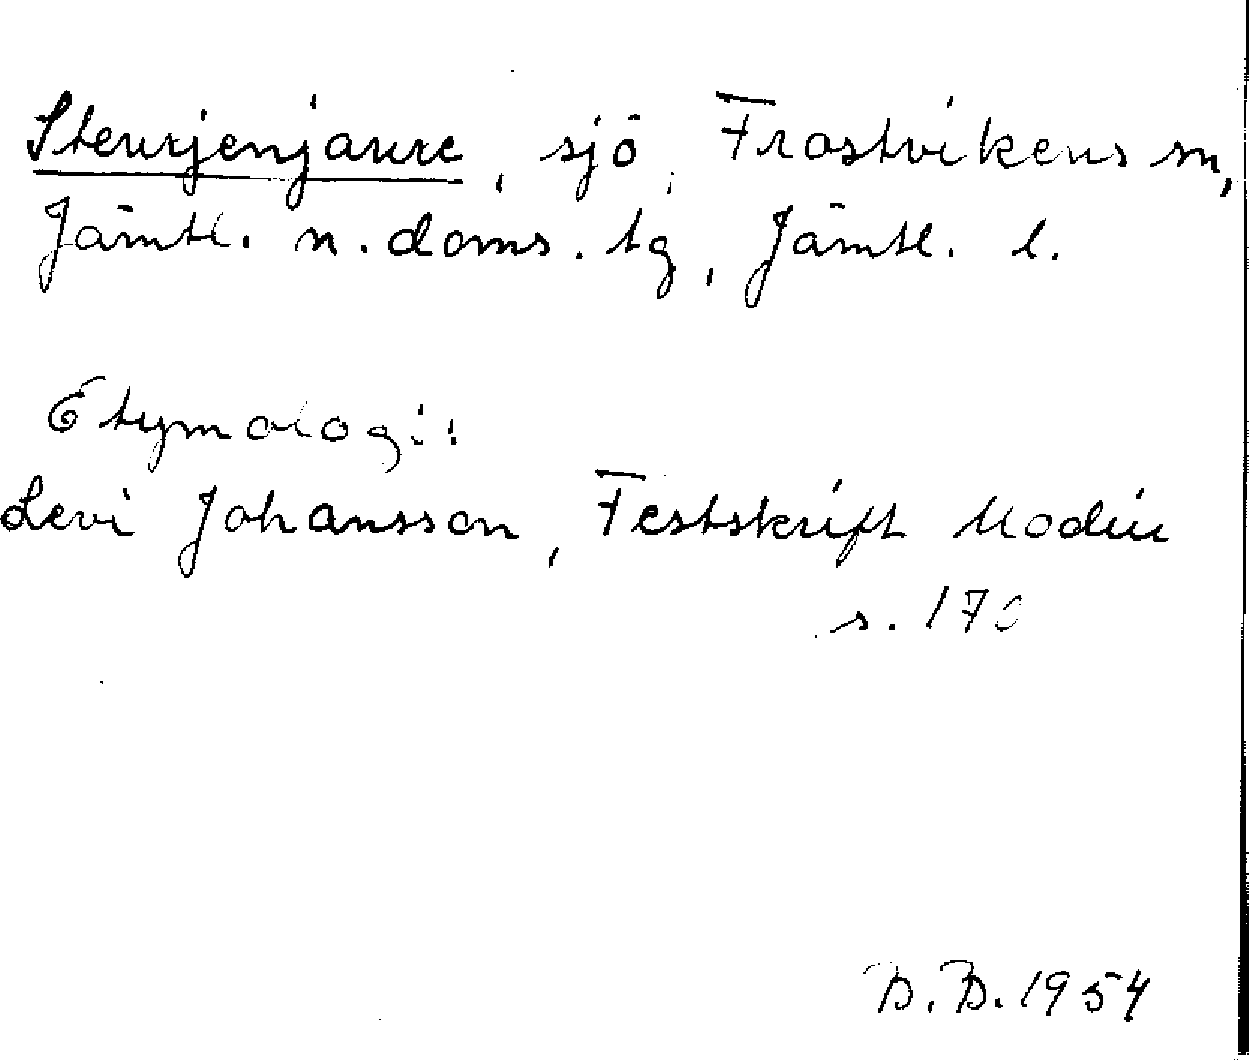 Steurjenjaure, sjö, Frostvikens sn,
Jämtl. n. doms. tg, Jämtl. l.
Etymologi:
Levi Johansson, Festskrift Modin
s. 170
B.B. 1954